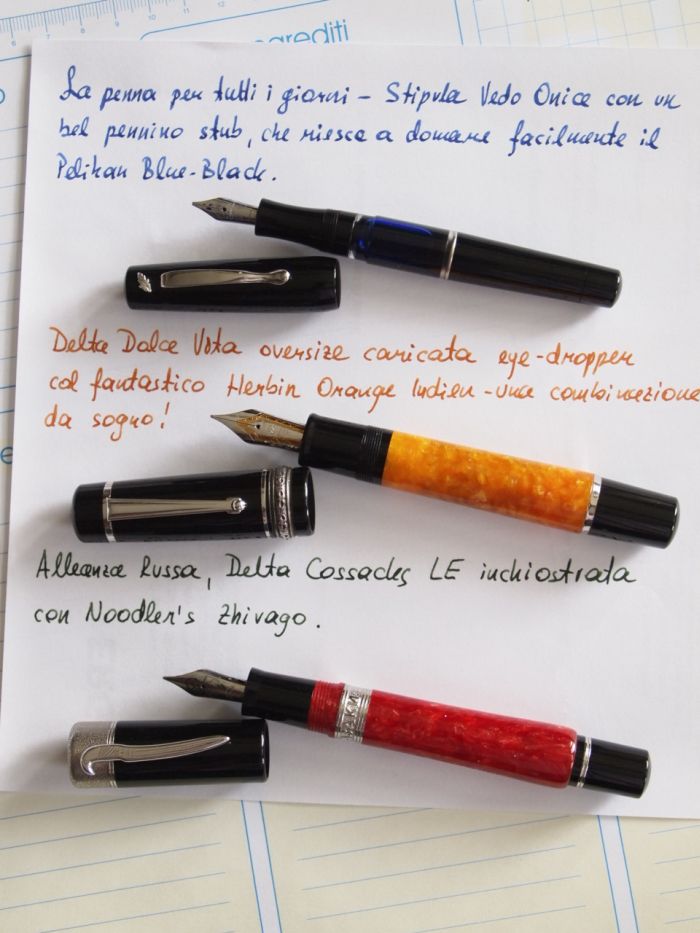 ngrediti
La penna per tutti i giorni - Stipula Vedo Onice con un
bel pennino stub, che riesce a domare facilmente il
Pelikan Blue-Black.
Delta Dolce Vita oversize caricata eye-dropper
col fantastico Herbin Orange Indien - una combinazione
da sogno!
Alleanza Russa, Delta Cossacks LE inchiostrata
con Noodler's Zhivago.